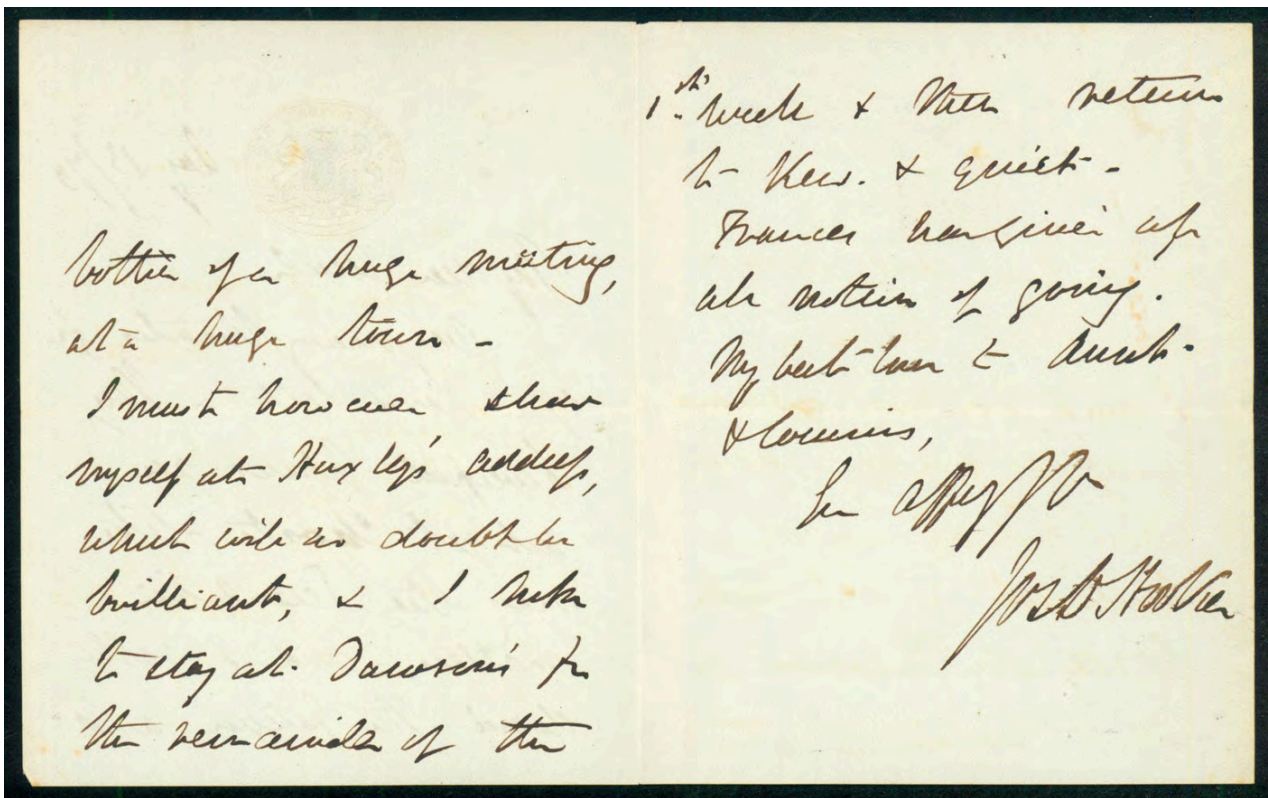 bother of a huge meeting,
at a huge town –
I must however show
myself at Huxley's address,
which will no doubt be
brilliant, & I hope
to stay at Dawson's for
the remainder of the
1st. week & then return
to Kew. & quiet –
Frances has given up
all notion of going.
My best love to Aunt –
& Cousins,
Jos D Hooker